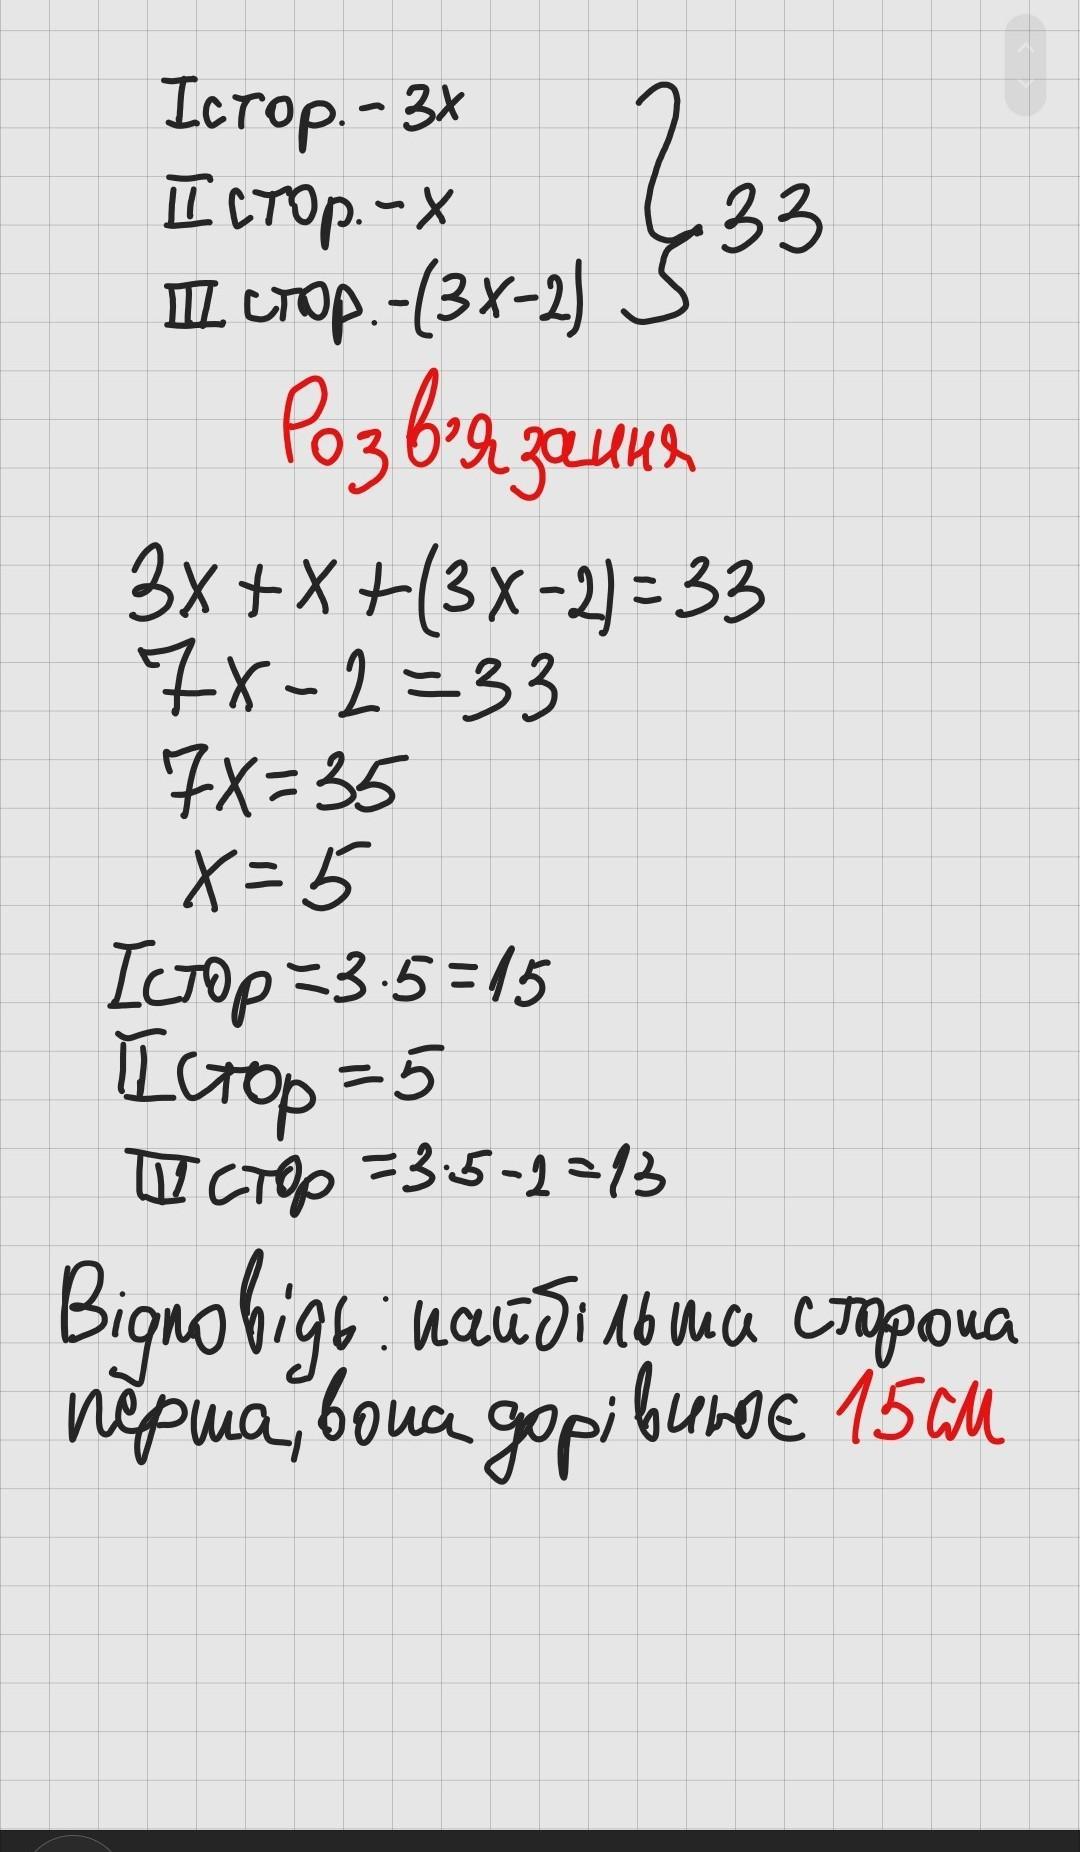 I стор. - 3x
II стор. - x
III стор. - (3x-2)
} 33
Розв'язання
3x + x + (3x - 2) = 33
7x - 2 = 33
7x = 35
x = 5
I стор = 3·5 = 15
II стор = 5
III стор = 3·5 - 2 = 13
Відповідь: найбільша сторона
перша, вона дорівнює 15 см